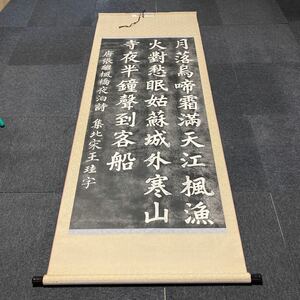 月落烏啼霜滿天江楓漁
火對愁眠姑蘇城外寒山
寺夜半鐘聲到客船
唐張繼楓橋夜泊詩 集北宋王珪字